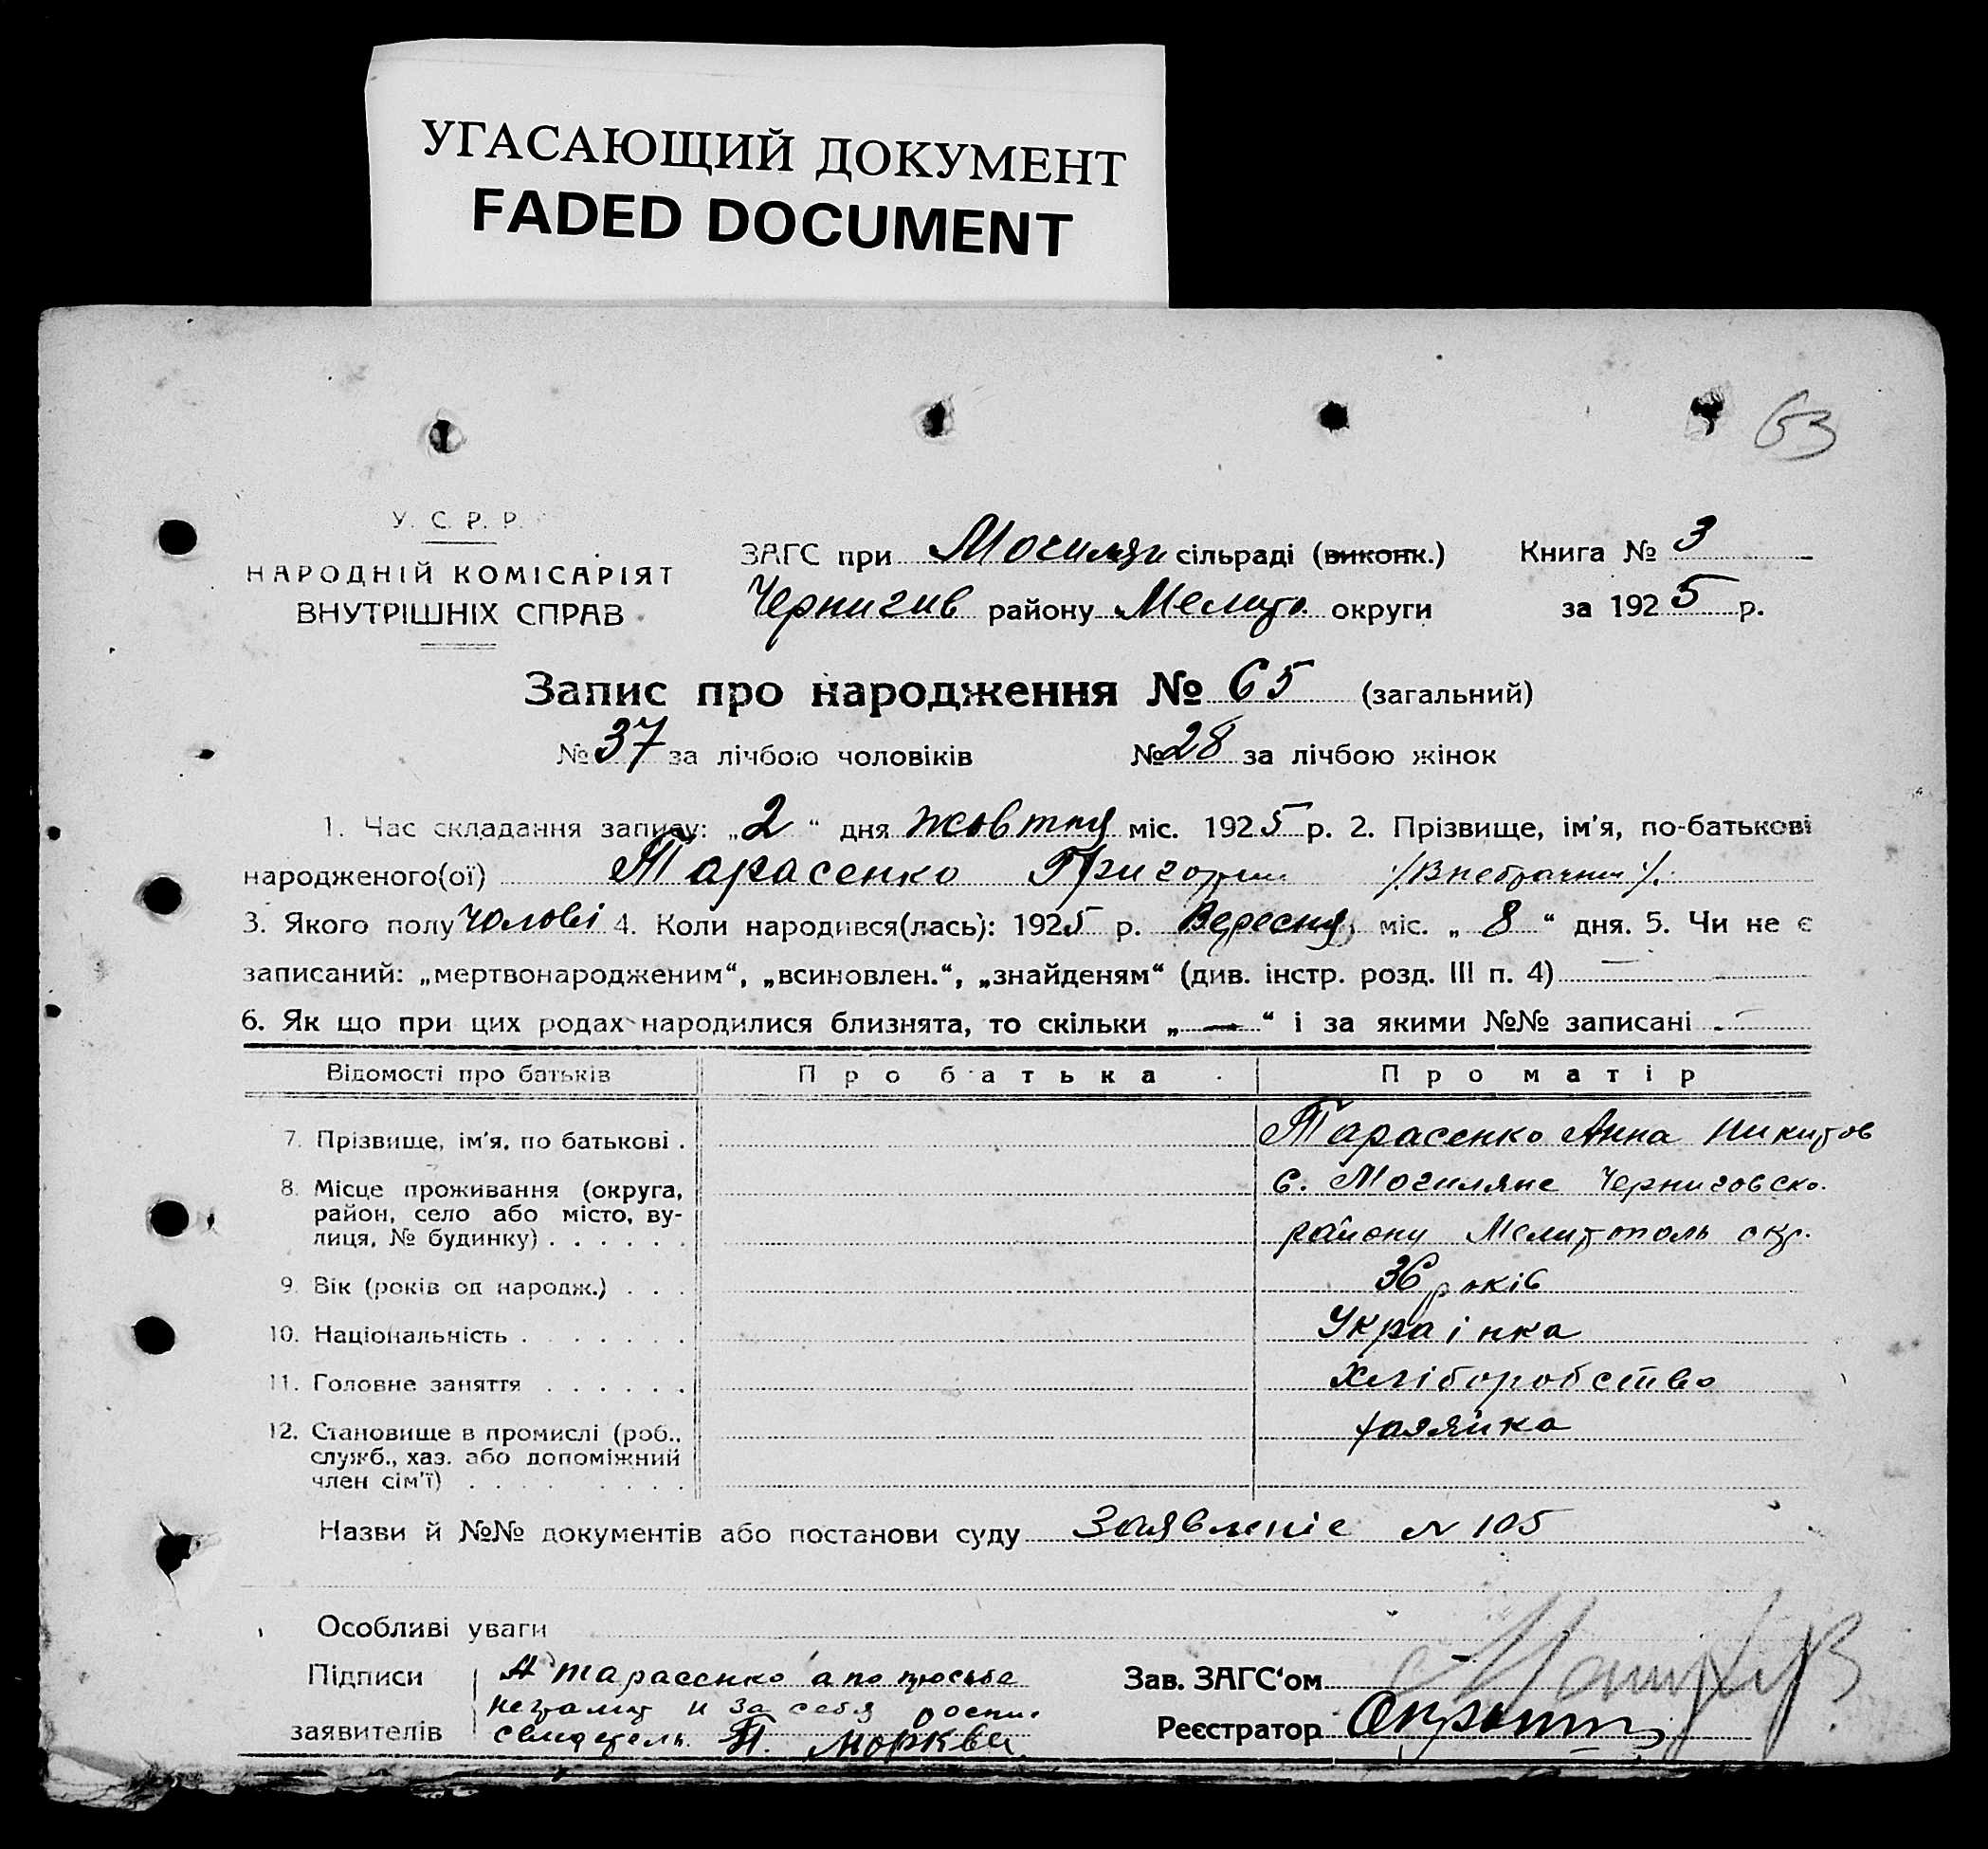 УГАСАЮЩИЙ ДОКУМЕНТ
FADED DOCUMENT
63
У. С. Р. Р.
НАРОДНІЙ КОМІСАРІЯТ
ВНУТРІШНІХ СПРАВ
ЗАГС при Могилян сільраді (виконк.) Книга № 3
Чернигив району Мелито. округи за 1925 р.
Запис про народження № 65 (загальний)
№ 37 за лічбою чоловіків № 28 за лічбою жінок
1. Час складання запису: „2“ дня жовтня міс. 1925 р. 2. Прізвище, ім'я, по-батькові
народженого(ої) Тарасенко Григорий /Внебрачний/.
3. Якого полу чолові 4. Коли народився(лась): 1925 р. Вересня міс. „8“ дня. 5. Чи не є
записаний: „мертвонародженим“, „всиновлен.“, „знайденям“ (див. інстр. розд. III п. 4) —
6. Як що при цих родах народилися близнята, то скільки „—“ і за якими №№ записані —
Відомості про батьків Про батька Про матір
7. Прізвище, ім'я, по батькові . Тарасенко Анна Никитов
8. Місце проживання (округа, район, село або місто, вулиця, № будинку) . . . . . . с. Могиляне Черниговско.
району Мелитополь окр.
9. Вік (років од народж.) . . . 36 років
10. Національність . . . . . . Українка
11. Головне заняття . . . . . . Хліборобство
12. Становище в промислі (роб., служб., хаз. або допоміжний член сім'ї) . . . . . . . . хазяйка
Назви й №№ документів або постанови суду Заявленіе N 105
Особливі уваги
Підписи заявителів
А Тарасенко а по просьбе
неграмот и за себя роспис
свидетель П. Морква
Зав. ЗАГС'ом
Реєстратор